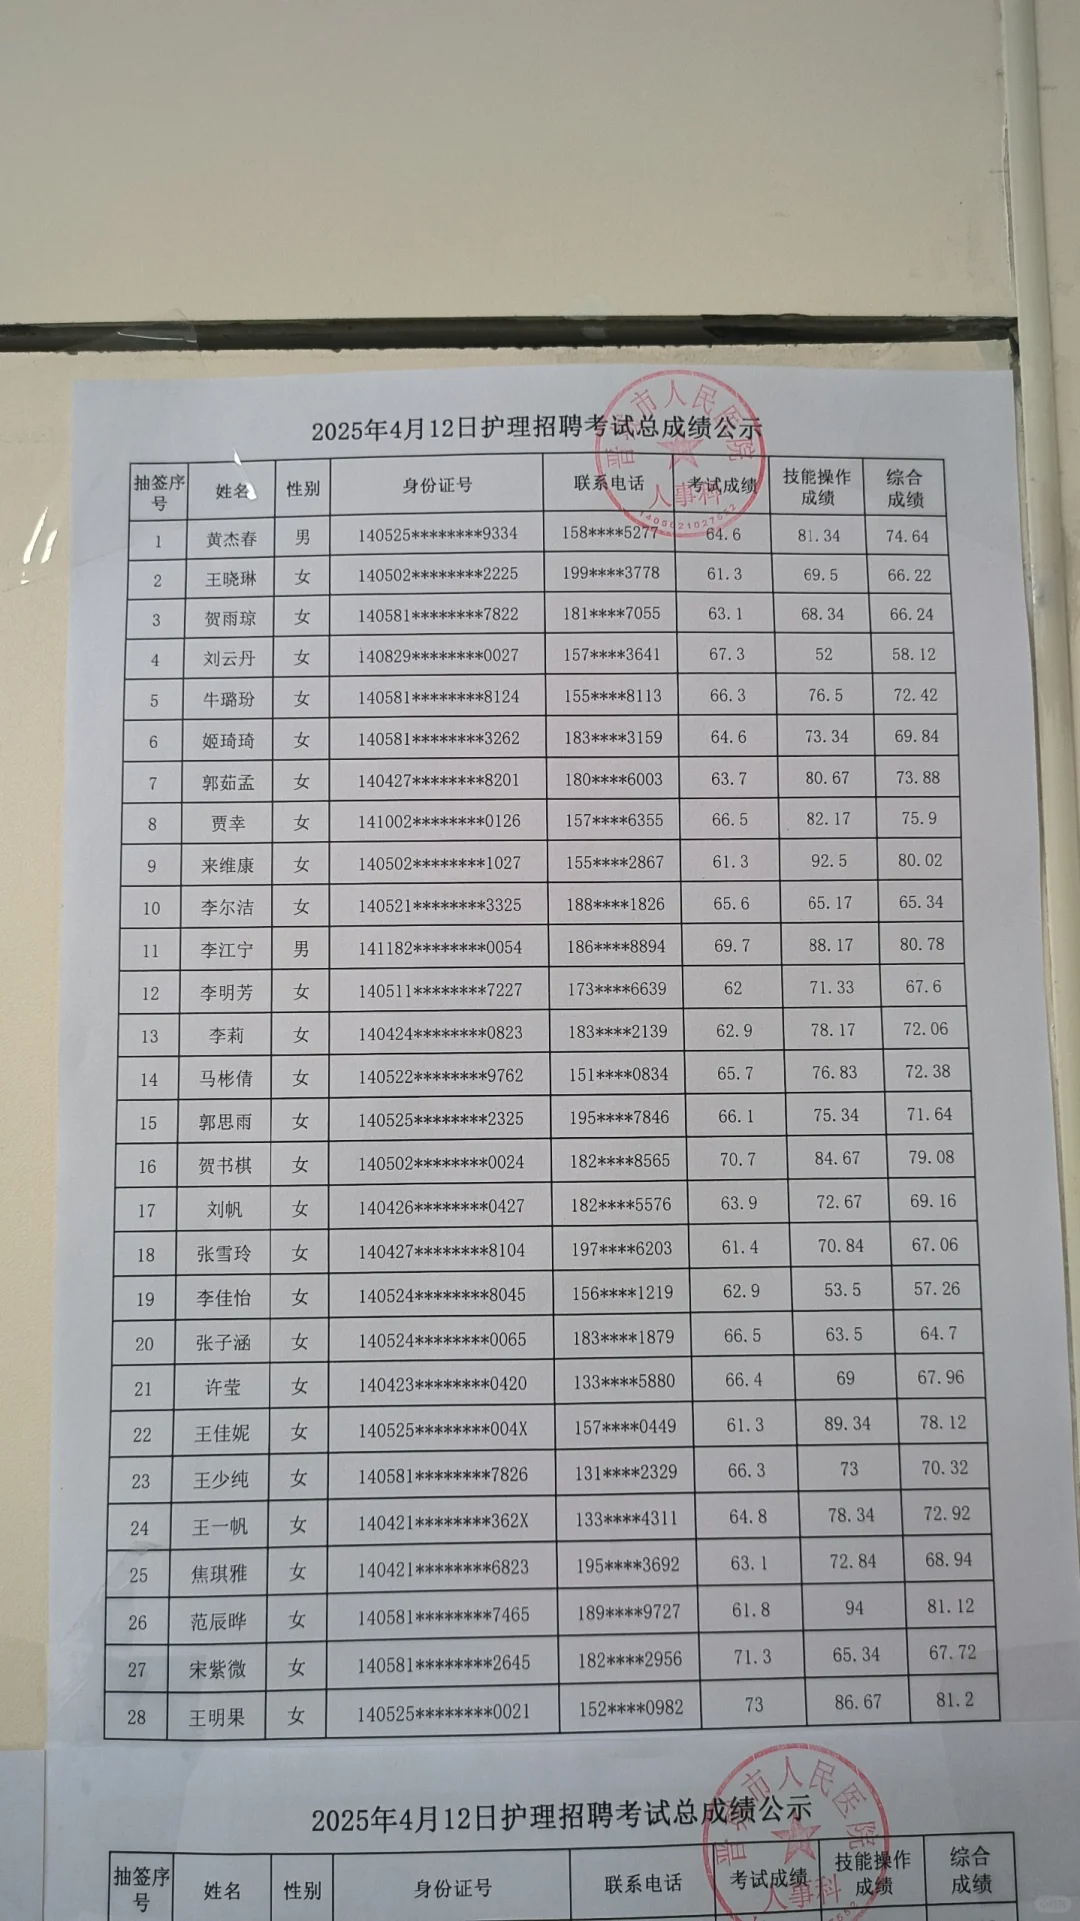 2025年4月12日护理招聘考试总成绩公示
晋城市人民医院
人事科
抽签序号 姓名 性别 身份证号 联系电话 考试成绩 技能操作成绩 综合成绩
1 黄杰春 男 140525********9334 158****5277 64.6 81.34 74.64
2 王晓琳 女 140502********2225 199****3778 61.3 69.5 66.22
3 贺雨琼 女 140581********7822 181****7055 63.1 68.34 66.24
4 刘云丹 女 140829********0027 157****3641 67.3 52 58.12
5 牛璐玢 女 140581********8124 155****8113 66.3 76.5 72.42
6 姬琦琦 女 140581********3262 183****3159 64.6 73.34 69.84
7 郭茹孟 女 140427********8201 180****6003 63.7 80.67 73.88
8 贾幸 女 141002********0126 157****6355 66.5 82.17 75.9
9 来维康 女 140502********1027 155****2867 61.3 92.5 80.02
10 李尔洁 女 140521********3325 188****1826 65.6 65.17 65.34
11 李江宁 男 141182********0054 186****8894 69.7 88.17 80.78
12 李明芳 女 140511********7227 173****6639 62 71.33 67.6
13 李莉 女 140424********0823 183****2139 62.9 78.17 72.06
14 马彬倩 女 140522********9762 151****0834 65.7 76.83 72.38
15 郭思雨 女 140525********2325 195****7846 66.1 75.34 71.64
16 贺书棋 女 140502********0024 182****8565 70.7 84.67 79.08
17 刘帆 女 140426********0427 182****5576 63.9 72.67 69.16
18 张雪玲 女 140427********8104 197****6203 61.4 70.84 67.06
19 李佳怡 女 140524********8045 156****1219 62.9 53.5 57.26
20 张子涵 女 140524********0065 183****1879 66.5 63.5 64.7
21 许莹 女 140423********0420 133****5880 66.4 69 67.96
22 王佳妮 女 140525********004X 157****0449 61.3 89.34 78.12
23 王少纯 女 140581********7826 131****2329 66.3 73 70.32
24 王一帆 女 140421********362X 133****4311 64.8 78.34 72.92
25 焦琪雅 女 140421********6823 195****3692 63.1 72.84 68.94
26 范辰晔 女 140581********7465 189****9727 61.8 94 81.12
27 宋紫微 女 140581********2645 182****2956 71.3 65.34 67.72
28 王明果 女 140525********0021 152****0982 73 86.67 81.2
2025年4月12日护理招聘考试总成绩公示
晋城市人民医院
人事科
抽签序号 姓名 性别 身份证号 联系电话 考试成绩 技能操作成绩 综合成绩